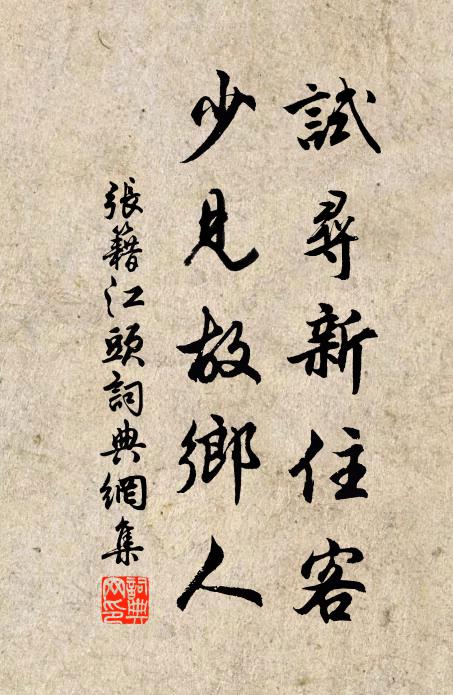 試尋新住客
少見故鄉人
張籍江頭詞典網集
詞典網印